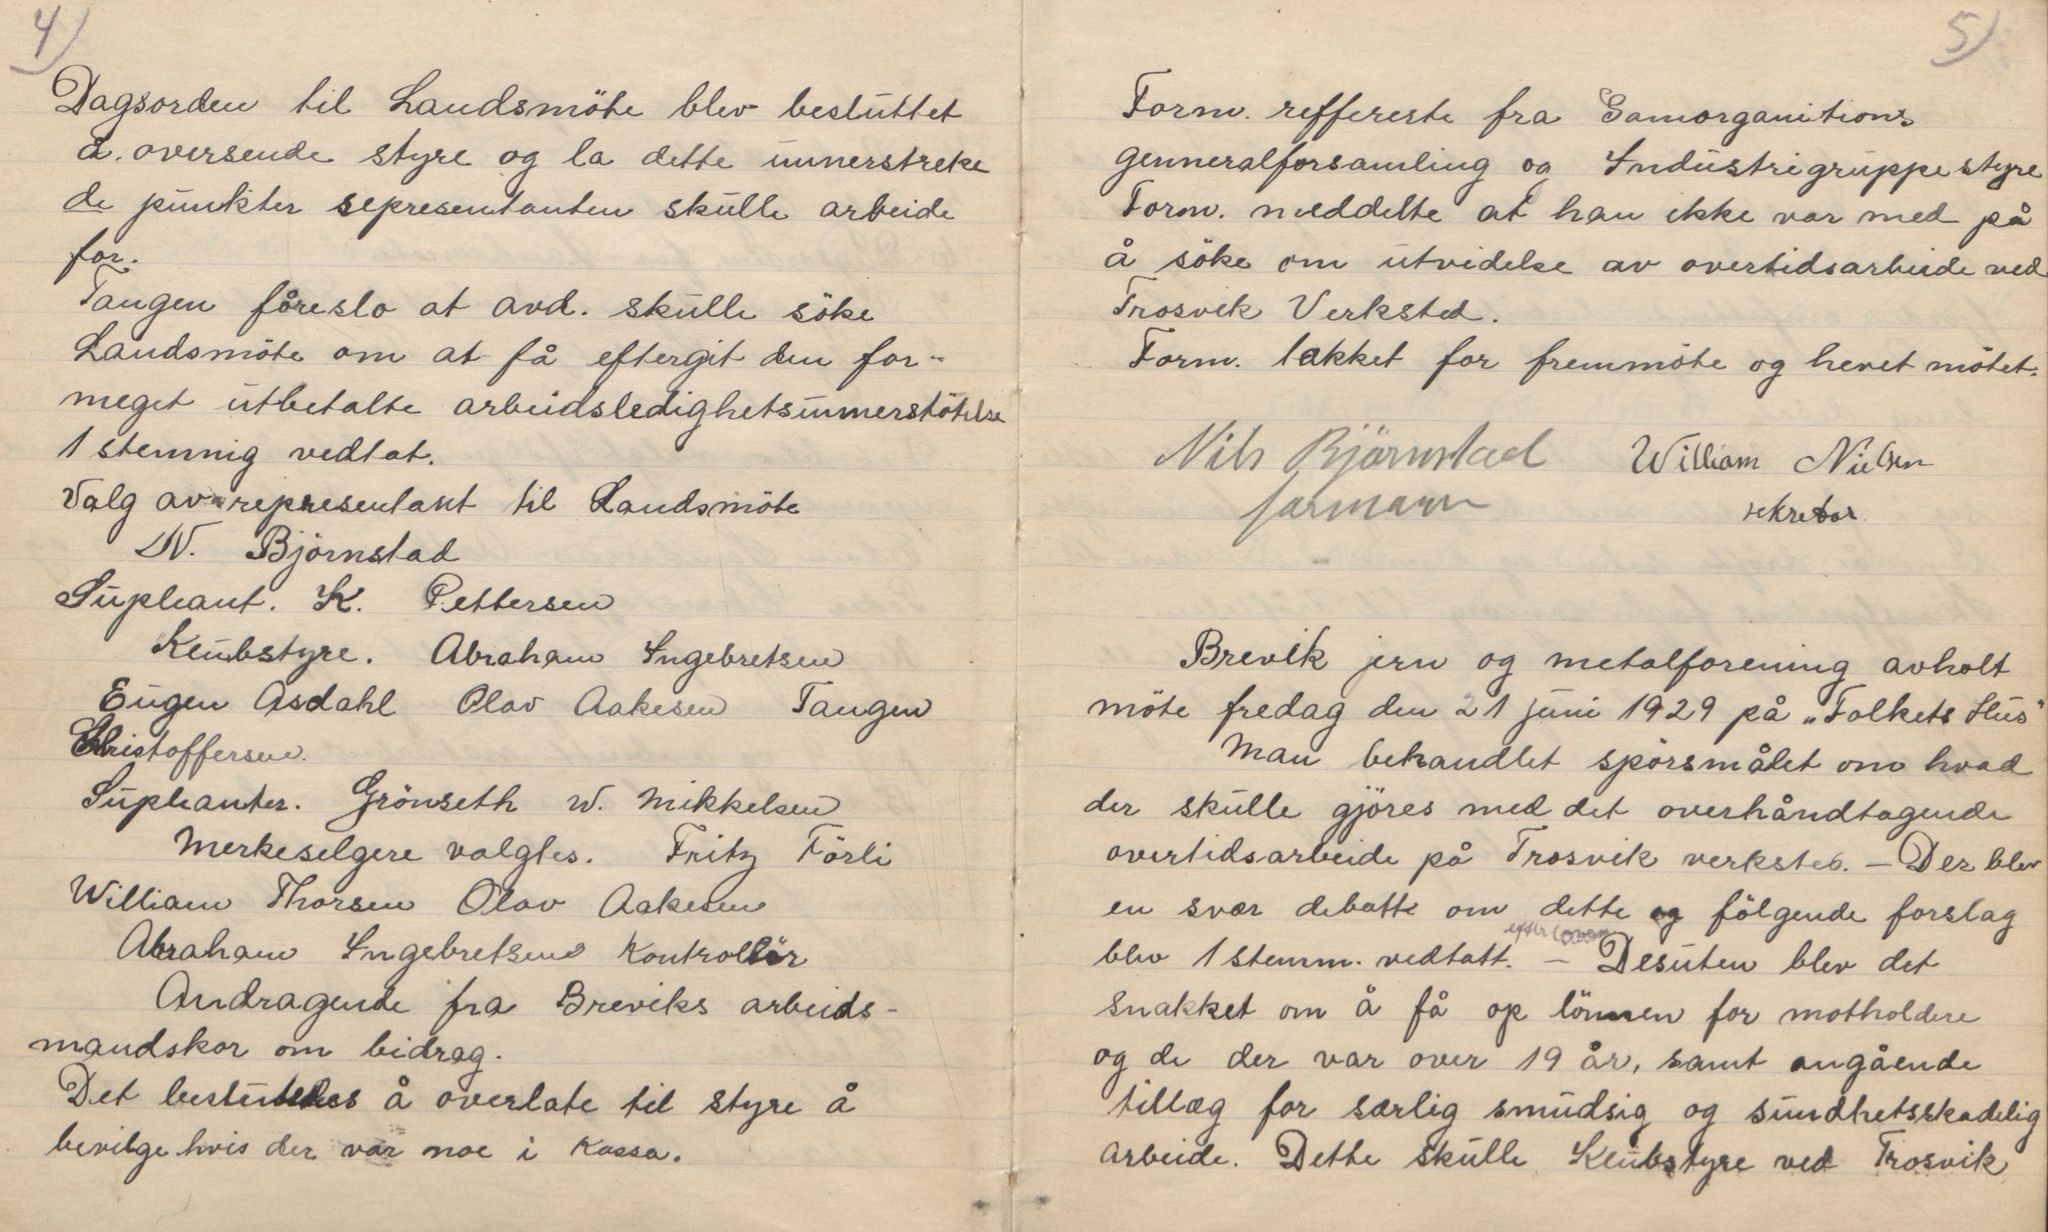 4)
Dagsorden til Landsmöte blev besluttet
å. oversende styre og la dette unnerstreke
de punkter representanten skulle arbeide
for.
Tangen føreslo at avd. skulle söke
Landsmöte om at få eftergit den for-
meget utbetalte arbeidsledighetsunnerstötelse
1 stemmig vedtat.
Valg av representant til Landsmöte
N. Björnstad
Supleant. K. Pettersen
Klubstyre. Abraham Ingebretsen
Eugen Asdahl Olav Aakesen Tangen
Christoffersen.
Supleanter. Grönseth W. Mikkelsen
Merkeselgere valgtes. Fritz Förli
William Thorsen Olav Aakesen
Abraham Ingebretsen Kontrollör
Andragende fra Breviks arbeids-
mandskor om bidrag.
Det besluttedes å overlate til styre å
bevilge hvis der var noe i Kassa.
5)
Form. reffereste fra Samorganitions
genneralforsamling og Industrigruppestyre
Form. meddelte at han ikke var med på
å söke om utvidelse av overtidsarbeide ved
Trosvik Verksted.
Form. takket for fremmöte og hevet mötet.
Nils Björnstad William Nielsen
formann sekretær
Brevik jern og metalforening avholt
möte fredag den 21 juni 1929 på „Folkets Hus"
Man behandlet spörsmålet om hvad
der skulle gjöres med det overhåndtagende
overtidsarbeide på Trosvik verksted. – Der blev
en svær debatt om dette og fölgende forslag
efter loven
blev 1 stemm. vedtatt. – Desuten blev det
snakket om å få op lönnen for motholdere
og de der var over 19 år, samt angående
tillæg for særlig smudsig og sundhetsskadelig
arbeide. Dette skulle Klubstyre ved Trosvik